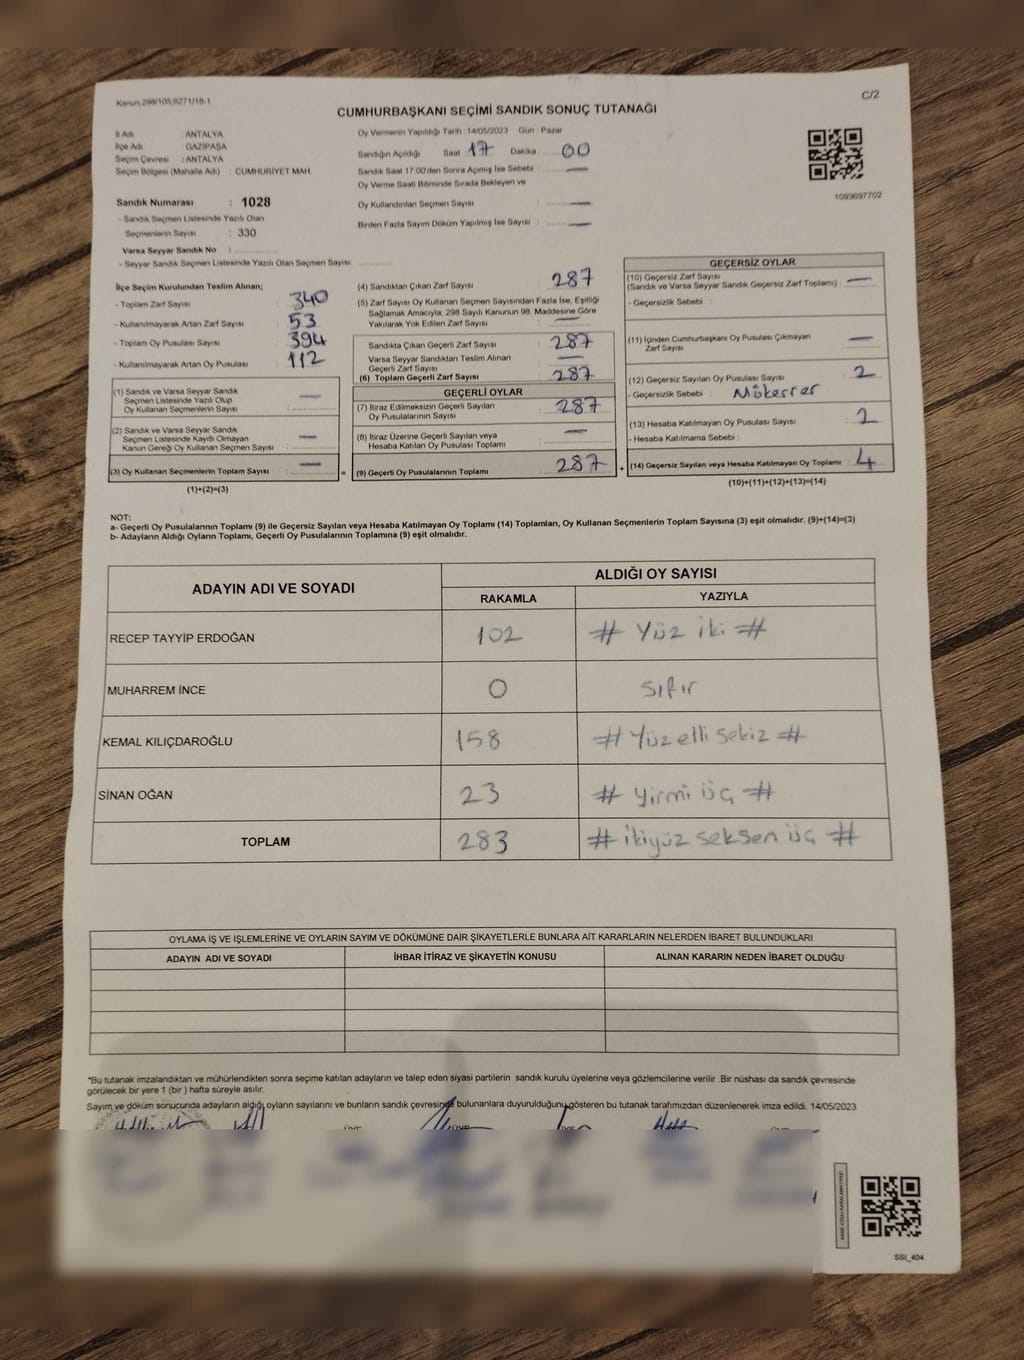 Kanun:298/105,6271/18-1
C/2
CUMHURBAŞKANI SEÇİMİ SANDIK SONUÇ TUTANAĞI
İl Adı : ANTALYA
İlçe Adı : GAZİPAŞA
Seçim Çevresi : ANTALYA
Seçim Bölgesi (Mahalle Adı) : CUMHURİYET MAH.
Sandık Numarası : 1028
- Sandık Seçmen Listesinde Yazılı Olan
Seçmenlerin Sayısı : 330
Varsa Seyyar Sandık No :
- Seyyar Sandık Seçmen Listesinde Yazılı Olan Seçmen Sayısı:
Oy Vermenin Yapıldığı Tarih :14/05/2023 Gün : Pazar
Sandığın Açıldığı Saat 17 Dakika : 00
Sandık Saat 17:00'den Sonra Açılmış İse Sebebi : —
Oy Verme Saati Bitiminde Sırada Bekleyen ve
Oy Kullandırılan Seçmen Sayısı : —
Birden Fazla Sayım Döküm Yapılmış İse Sayısı : —
1093697702
İlçe Seçim Kurulundan Teslim Alınan;
- Toplam Zarf Sayısı : 340
- Kullanılmayarak Artan Zarf Sayısı : 53
- Toplam Oy Pusulası Sayısı : 394
- Kullanılmayarak Artan Oy Pusulası : 112
(1) Sandık ve Varsa Seyyar Sandık
Seçmen Listesinde Yazılı Olup
Oy Kullanan Seçmenlerin Sayısı : —
(2) Sandık ve Varsa Seyyar Sandık
Seçmen Listesinde Kayıtlı Olmayan
Kanun Gereği Oy Kullanan Seçmen Sayısı : —
(3) Oy Kullanan Seçmenlerin Toplam Sayısı : — =
(1)+(2)=(3)
(4) Sandıktan Çıkan Zarf Sayısı : 287
(5) Zarf Sayısı Oy Kullanan Seçmen Sayısından Fazla İse, Eşitliği
Sağlamak Amacıyla; 298 Sayılı Kanunun 98. Maddesine Göre
Yakılarak Yok Edilen Zarf Sayısı : —
Sandıkta Çıkan Geçerli Zarf Sayısı : 287
Varsa Seyyar Sandıktan Teslim Alınan
Geçerli Zarf Sayısı : —
(6) Toplam Geçerli Zarf Sayısı : 287
GEÇERLİ OYLAR
(7) İtiraz Edilmeksizin Geçerli Sayılan
Oy Pusulalarının Sayısı : 287
(8) İtiraz Üzerine Geçerli Sayılan veya
Hesaba Katılan Oy Pusulası Toplamı : —
(9) Geçerli Oy Pusulalarının Toplamı : 287 +
GEÇERSİZ OYLAR
(10) Geçersiz Zarf Sayısı
(Sandık ve Varsa Seyyar Sandık Geçersiz Zarf Toplamı) : —
- Geçersizlik Sebebi :
(11) İçinden Cumhurbaşkanı Oy Pusulası Çıkmayan
Zarf Sayısı : —
(12) Geçersiz Sayılan Oy Pusulası Sayısı : 2
- Geçersizlik Sebebi : Mükerrer
(13) Hesaba Katılmayan Oy Pusulası Sayısı : 2
- Hesaba Katılmama Sebebi :
(14) Geçersiz Sayılan veya Hesaba Katılmayan Oy Toplamı : 4
(10)+(11)+(12)+(13)=(14)
NOT:
a- Geçerli Oy Pusulalarının Toplamı (9) ile Geçersiz Sayılan veya Hesaba Katılmayan Oy Toplamı (14) Toplamları, Oy Kullanan Seçmenlerin Toplam Sayısına (3) eşit olmalıdır. (9)+(14)=(3)
b- Adayların Aldığı Oyların Toplamı, Geçerli Oy Pusulalarının Toplamına (9) eşit olmalıdır.
ADAYIN ADI VE SOYADI
ALDIĞI OY SAYISI
RAKAMLA YAZIYLA
RECEP TAYYİP ERDOĞAN 102 # Yüz iki #
MUHARREM İNCE 0 sıfır
KEMAL KILIÇDAROĞLU 158 # Yüz elli sekiz #
SİNAN OĞAN 23 # yirmi üç #
TOPLAM 283 # ikiyüz seksen üç #
OYLAMA İŞ VE İŞLEMLERİNE VE OYLARIN SAYIM VE DÖKÜMÜNE DAİR ŞİKAYETLERLE BUNLARA AİT KARARLARIN NELERDEN İBARET BULUNDUKLARI
ADAYIN ADI VE SOYADI İHBAR İTİRAZ VE ŞİKAYETİN KONUSU ALINAN KARARIN NEDEN İBARET OLDUĞU
*Bu tutanak imzalandıktan ve mühürlendikten sonra seçime katılan adayların ve talep eden siyasi partilerin sandık kurulu üyelerine veya gözlemcilerine verilir .Bir nüshası da sandık çevresinde
görülecek bir yere 1 (bir ) hafta süreyle asılır.
Sayım ve döküm sonucunda adayların aldığı oyların sayılarını ve bunların sandık çevresinde bulunanlara duyurulduğunu gösteren bu tutanak tarafımızdan düzenlenerek imza edildi. 14/05/2023
SSI_404